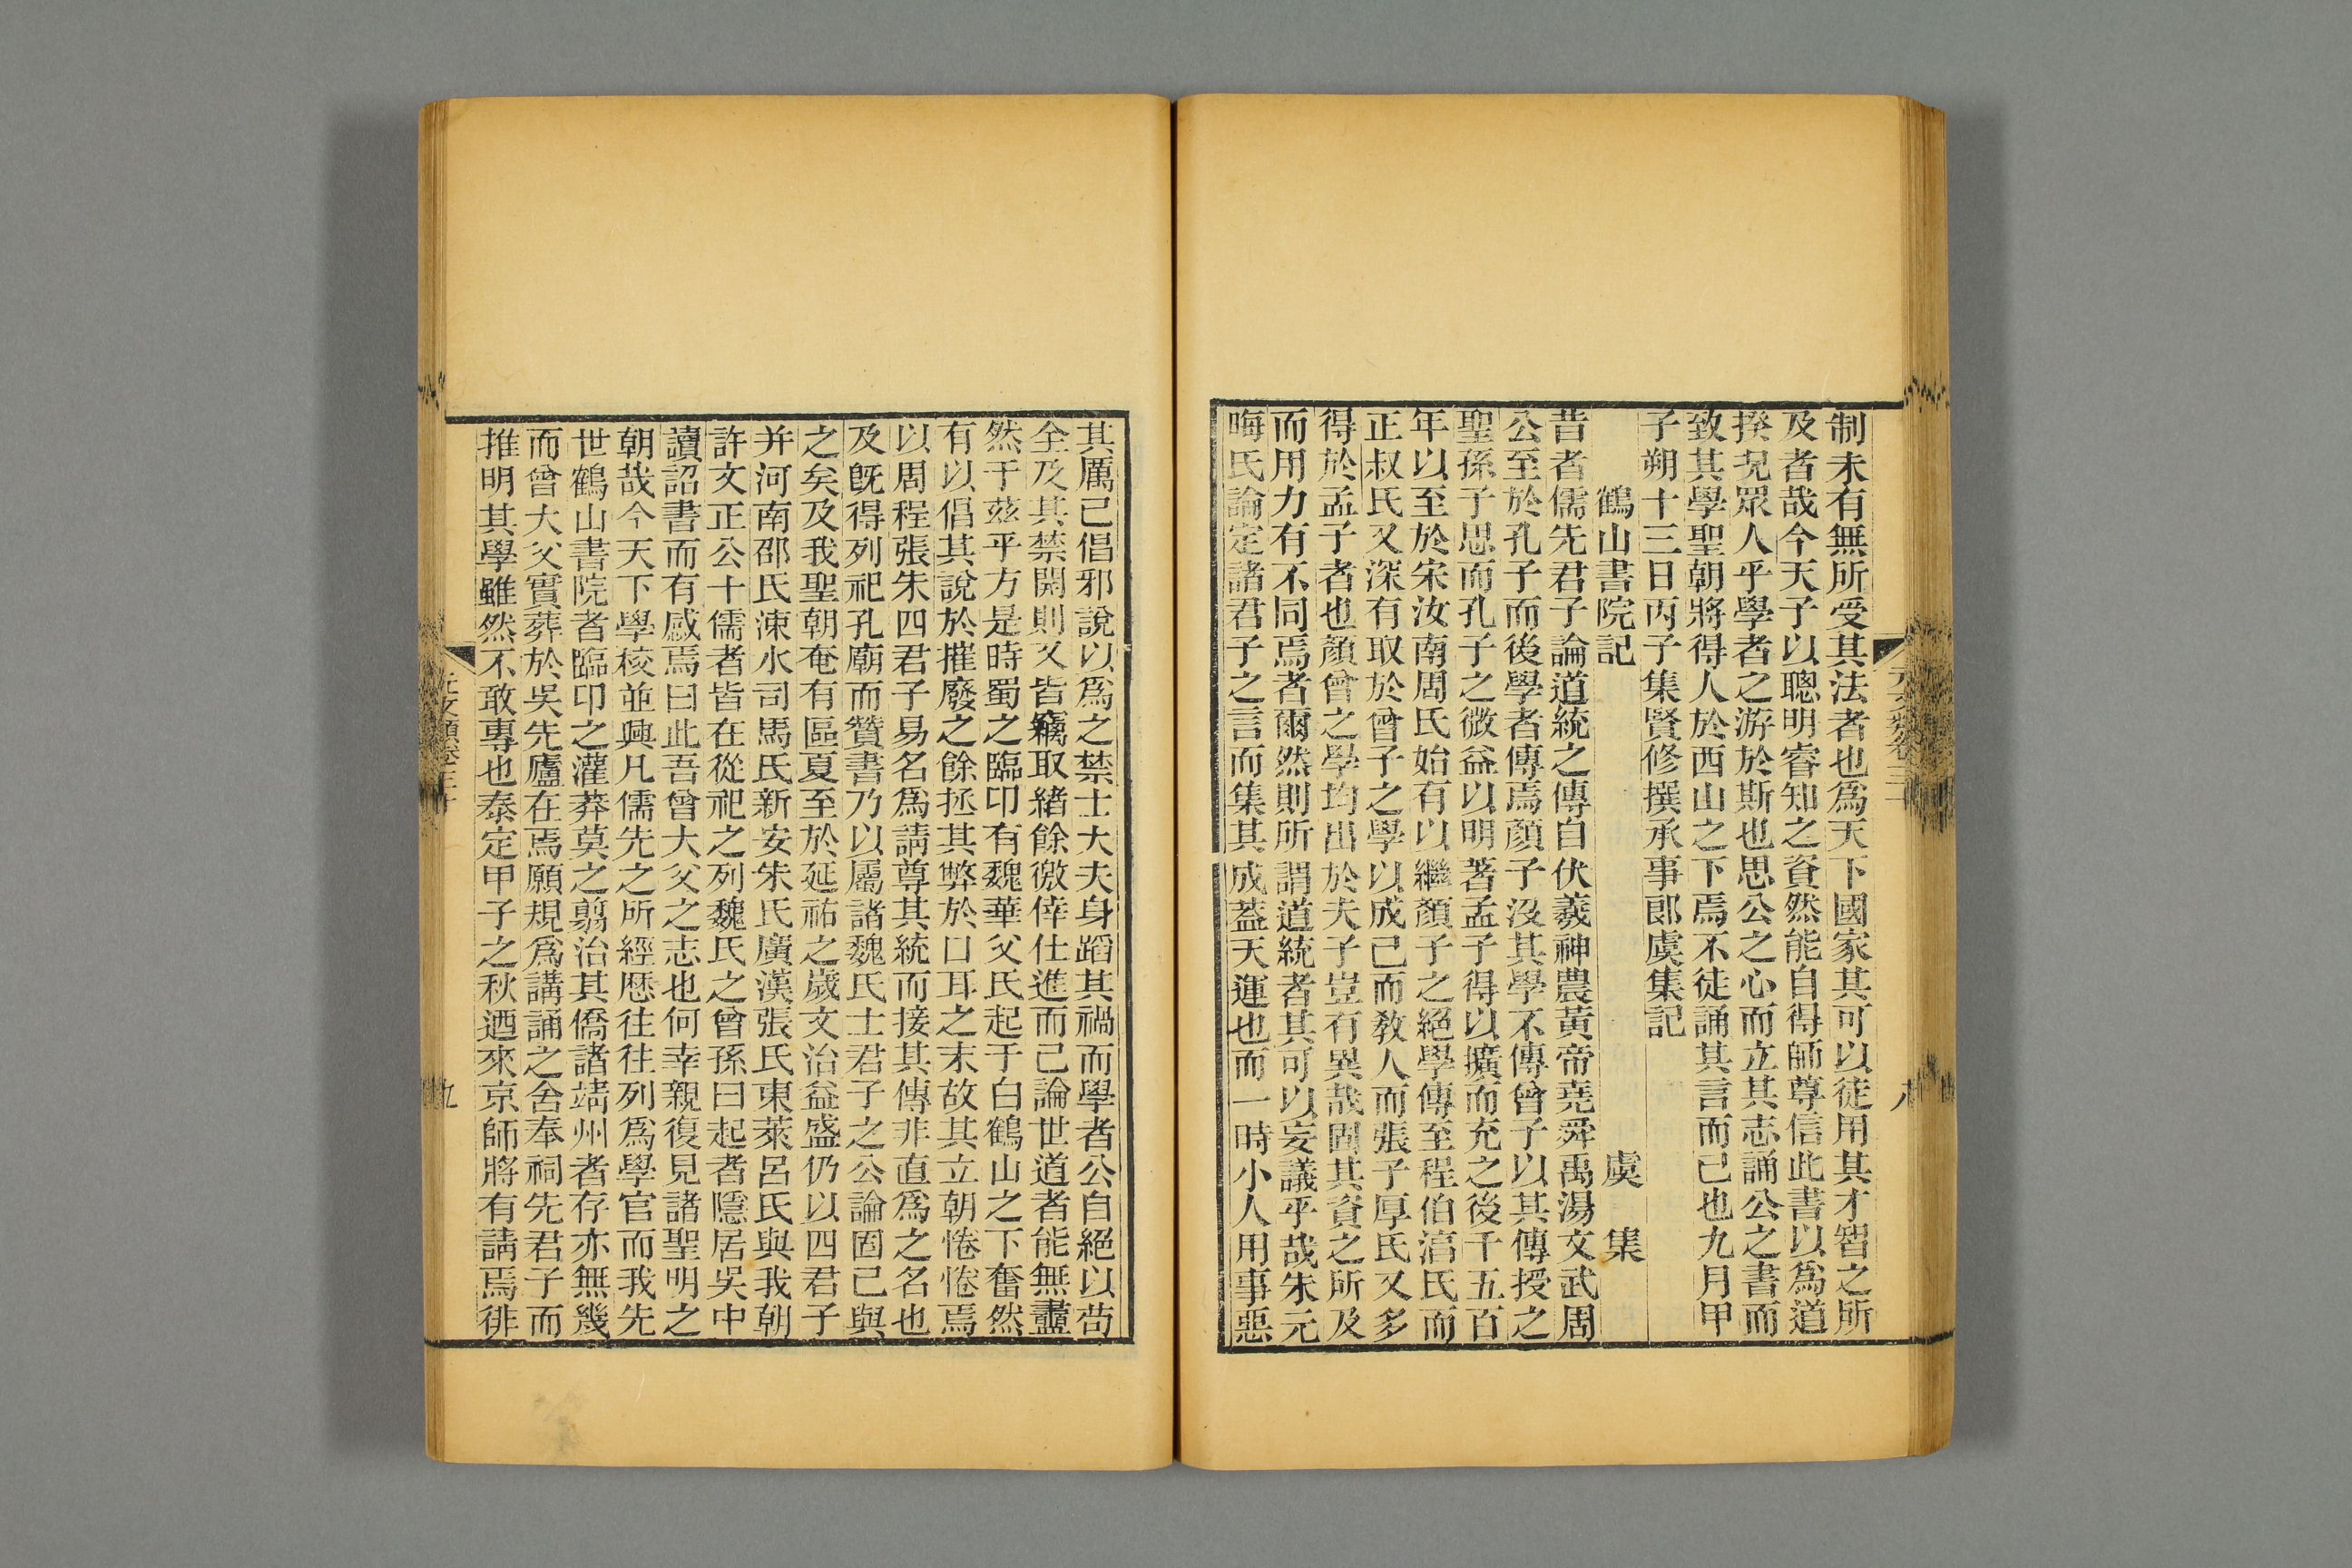 制未有無所受其法者也爲天下國家其可以徒用其才智之所
及者哉今天子以聰明睿知之資然能自得師尊信此書以爲道
揆況眾人乎學者之游於斯也思公之心而立其志誦公之書而
致其學聖朝將得人於西山之下焉不徒誦其言而已也九月甲
子朔十三日丙子集賢修撰承事郎虞集記
鶴山書院記 虞 集
昔者儒先君子論道統之傳自伏羲神農黃帝堯舜禹湯文武周
公至於孔子而後學者傳焉顏子沒其學不傳曾子以其傳授之
聖孫子思而孔子之微益以明著孟子得以擴而充之後千五百
年以至於宋汝南周氏始有以繼顏子之絕學傳至程伯淳氏而
正叔氏又深有取於曾子之學以成己而教人而張子厚氏又多
得於孟子者也顏曾之學均出於夫子豈有異哉固其資之所及
而用力有不同焉者爾然則所謂道統者其可以妄議乎哉朱元
晦氏論定諸君子之言而集其成蓋天運也而一時小人用事惡
其厲己倡邪說以爲之禁士大夫身蹈其禍而學者公自絕以苟
全及其禁開則又皆竊取緒餘徼倖仕進而已論世道者能無盡
然于茲乎方是時蜀之臨卭有魏華父氏起于白鶴山之下奮然
有以倡其說於摧廢之餘拯其弊於口耳之末故其立朝惓惓焉
以周程張朱四君子易名爲請尊其統而接其傳非直爲之名也
及既得列祀孔廟而贊書乃以屬諸魏氏士君子之公論固已與
之矣及我聖朝奄有區夏至於延祐之歲文治益盛仍以四君子
并河南邵氏涑水司馬氏新安朱氏廣漢張氏東萊呂氏與我朝
許文正公十儒者皆在從祀之列魏氏之曾孫曰起者隱居吳中
讀詔書而有感焉曰此吾曾大父之志也何幸親復見諸聖明之
朝哉今天下學校並興凡儒先之所經歷往往列爲學官而我先
世鶴山書院者臨卭之灌莽莫之翦治其僑諸靖州者存亦無幾
而曾大父實葬於吳先廬在焉願規爲講誦之舍奉祠先君子而
推明其學雖然不敢專也泰定甲子之秋迺來京師將有請焉徘
元文類卷三十
九